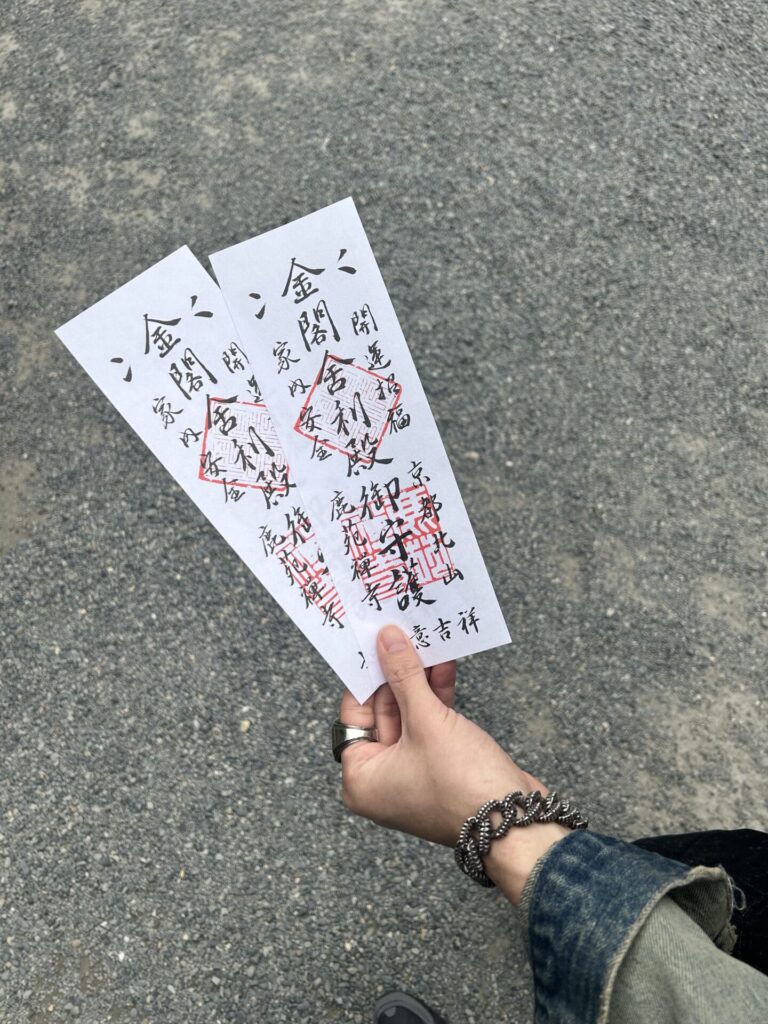 開運
金閣舎利殿
御
家内安全
鹿苑禅寺
開運招福
金閣舎利殿
御守護
家内安全
京都北山
鹿苑禅寺
意吉祥